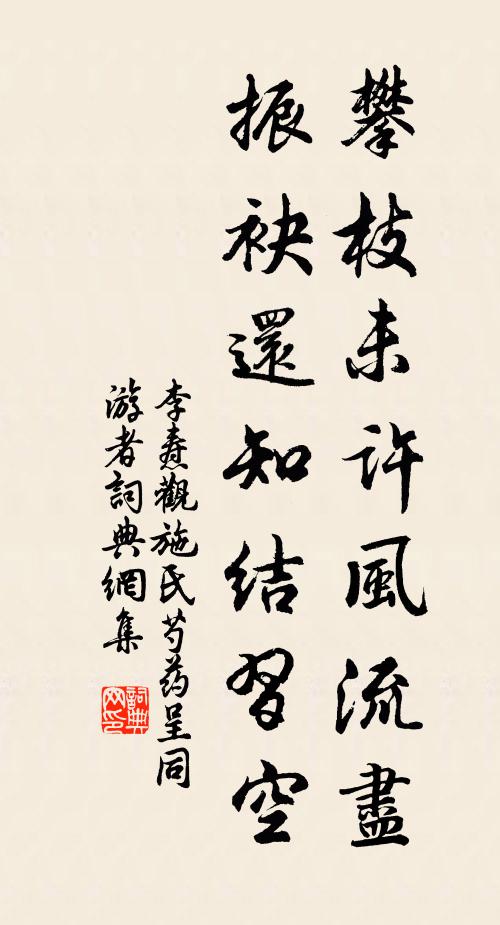 攀枝未許風流盡
振袂還知結習空
李燾觀施氏芍药呈同
游者詞典網集
詞典网印